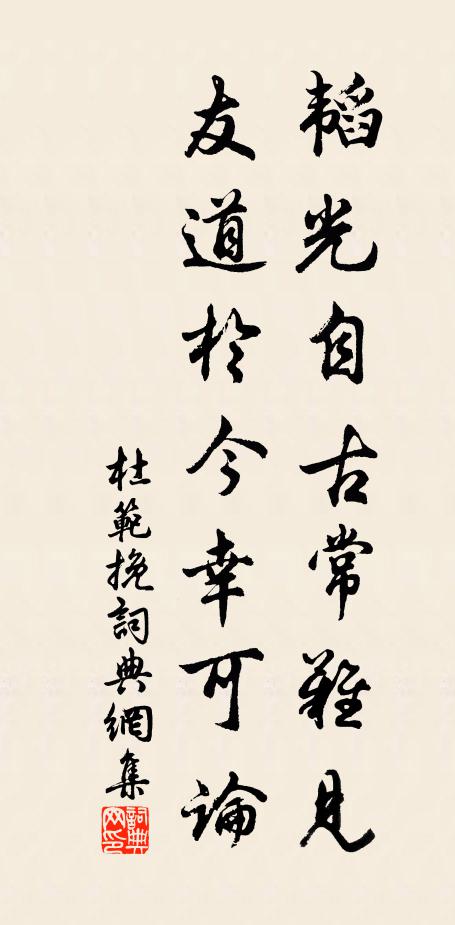 韜光自古常難見
友道於今幸可論
杜範挽詞典網集
詞典網印